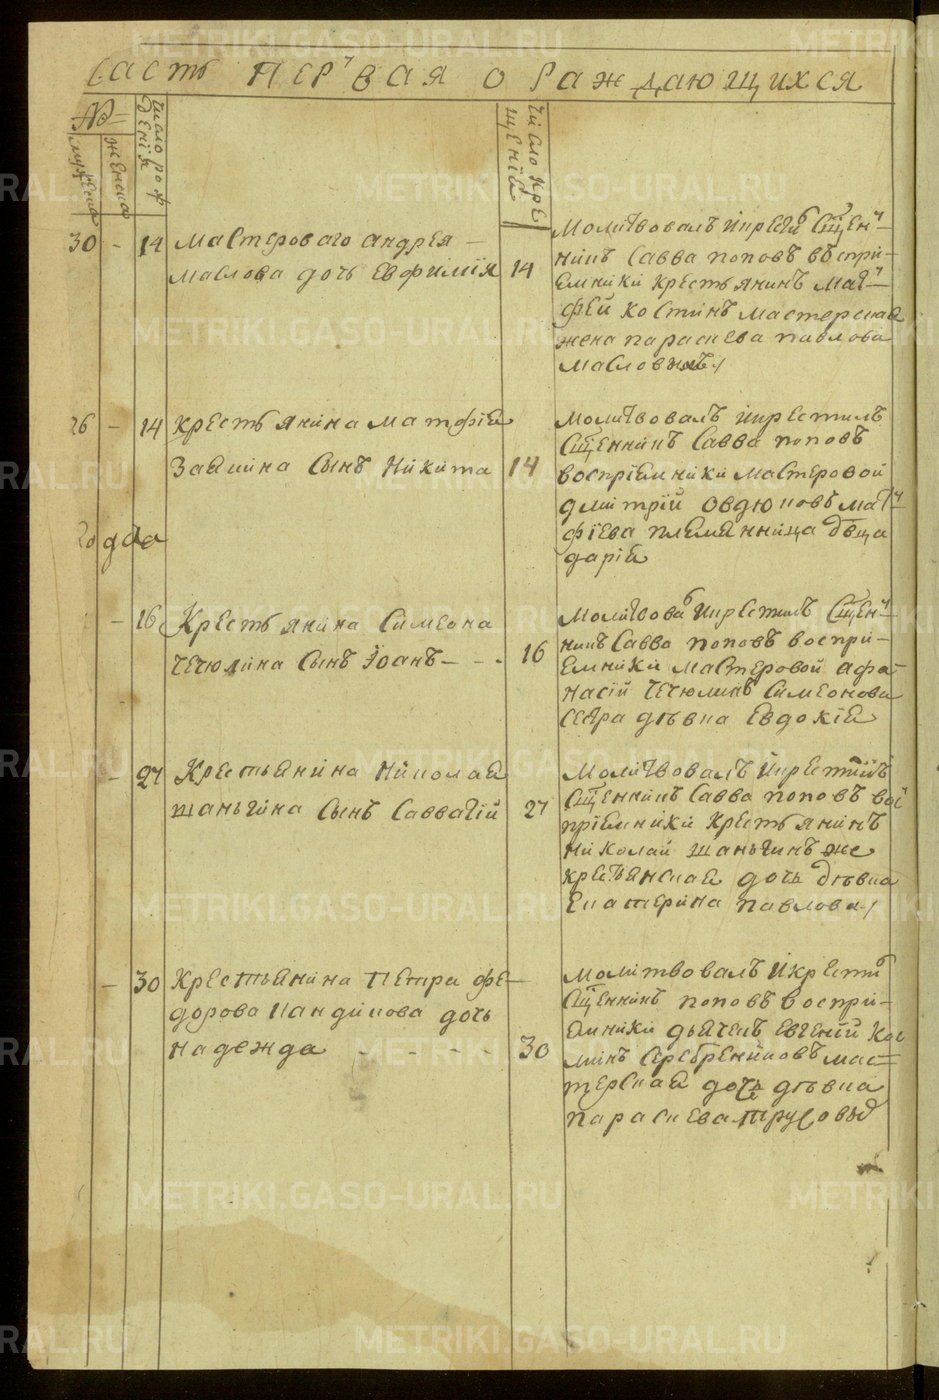 Часть Первая о Раждающихся
№
мужеска
женска
число рождения
Число Крещения
30 - 14 Мастероваго Андрея -
маслова дочь Евфимия 14
Молитвовалъ икрестиⷧ҇ Сщен-
никъ Савва поповъ воспри-
емники Крестьянинъ Мат-
фей Костинъ мастерская
жена параскева павлова
масловыхъ
26 - 14 Крестьянина Матфея
сынъ Никита 14
Молитвовалъ икрестилъ
Сщенникъ Савва поповъ
воспріемники Мастеровой
Дмитрій Овдюковъ Мат-
фіева племянница дѣвица
дарія
года
- 16 Крестьянина Симеона
Чечюлина Сынъ Іоанъ - - - 16
Молитвоваⷧ҇ икрестилъ Сщен-
никъ Савва поповъ воспри-
емники Мастеровой афа-
насій Чечюлинъ Симеонова
сестра дѣвка Евдокія
- 27 Крестьянина Николая
шаньгина Сынъ Савватій 27
Молитвовалъ икрестилъ
Сщенникъ Савва поповъ вос
пріемники Крестьянинъ
николай шаньгинъ же
крестьянская дочь дѣвка
Екатерина павлова
- 30 Крестьянина Петра Фе-
дорова Кандакова дочь
надежда - - - - 30
Молитвовалъ икрести
Сщенникъ поповъ воспри-
емники дьячекъ Евгеній Кос
минъ Серебрениковъ мас-
терская дочь дѣвка
параскева трусовыⷯ
METRIKI.GASO-URAL.RU